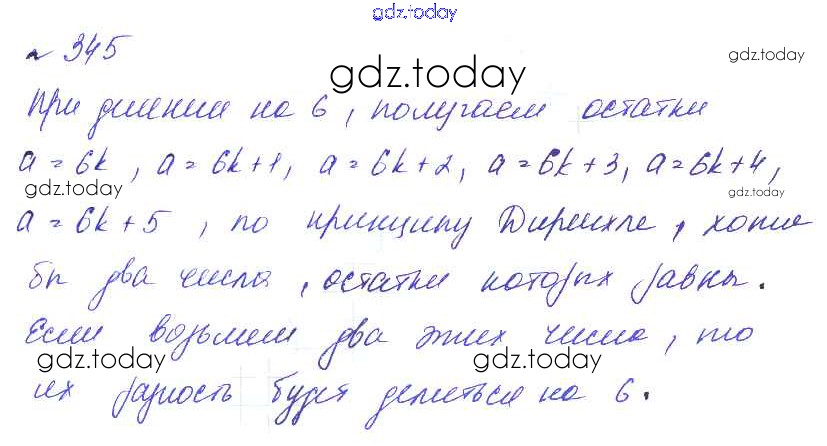 gdz.today
№ 345
gdz.today
gdz.today
При делении на 6, получаем остатки
a = 6k, a = 6k+1, a = 6k+2, a = 6k+3, a = 6k+4,
gdz.today
gdz.today
a = 6k+5, по принципу Дирихле, хотя
бы два числа, остатки которых равны.
Если возьмем два этих числа, то
gdz.today
gdz.today
их разность будет делиться на 6.